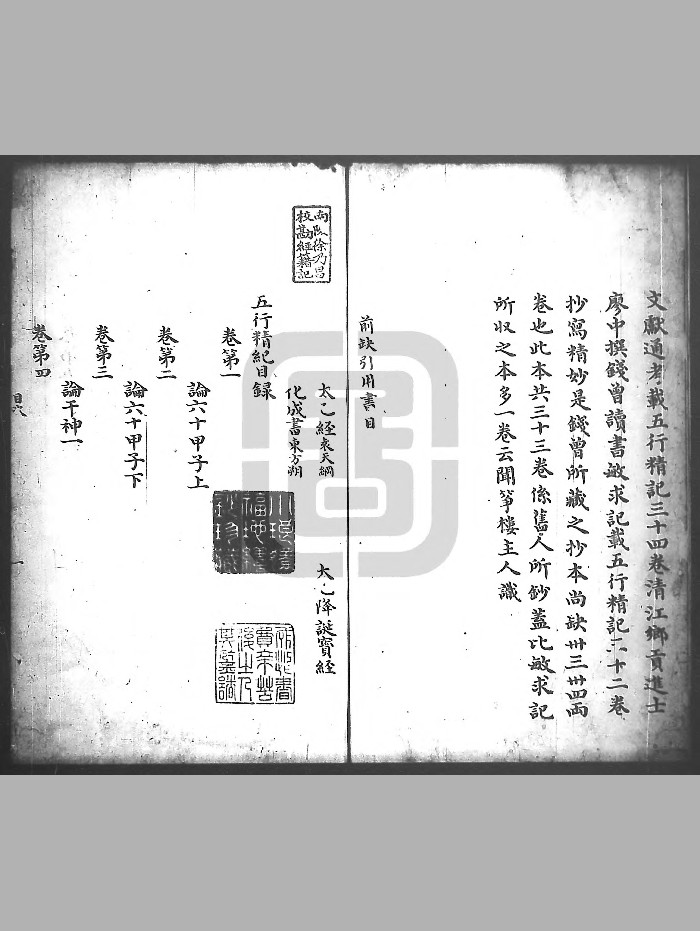 文獻通考載五行精記三十四卷清江鄉貢進士
廖中撰錢曾讀書敏求記載五行精記二十二卷
抄寫精妙是錢曾所藏之抄本尚缺卅三卅四兩
卷也此本共三十三卷係舊人所鈔蓋比敏求記
所收之本多一卷云聞箏樓主人識
前缺引用書目
太乙經袁天綱 太乙降誕寶經
化成書東方朔
南陵徐乃昌
校勘經籍記
五行精紀目録
卷第一
論六十甲子上
卷第二
論六十甲子下
卷第三
論干神一
卷第四